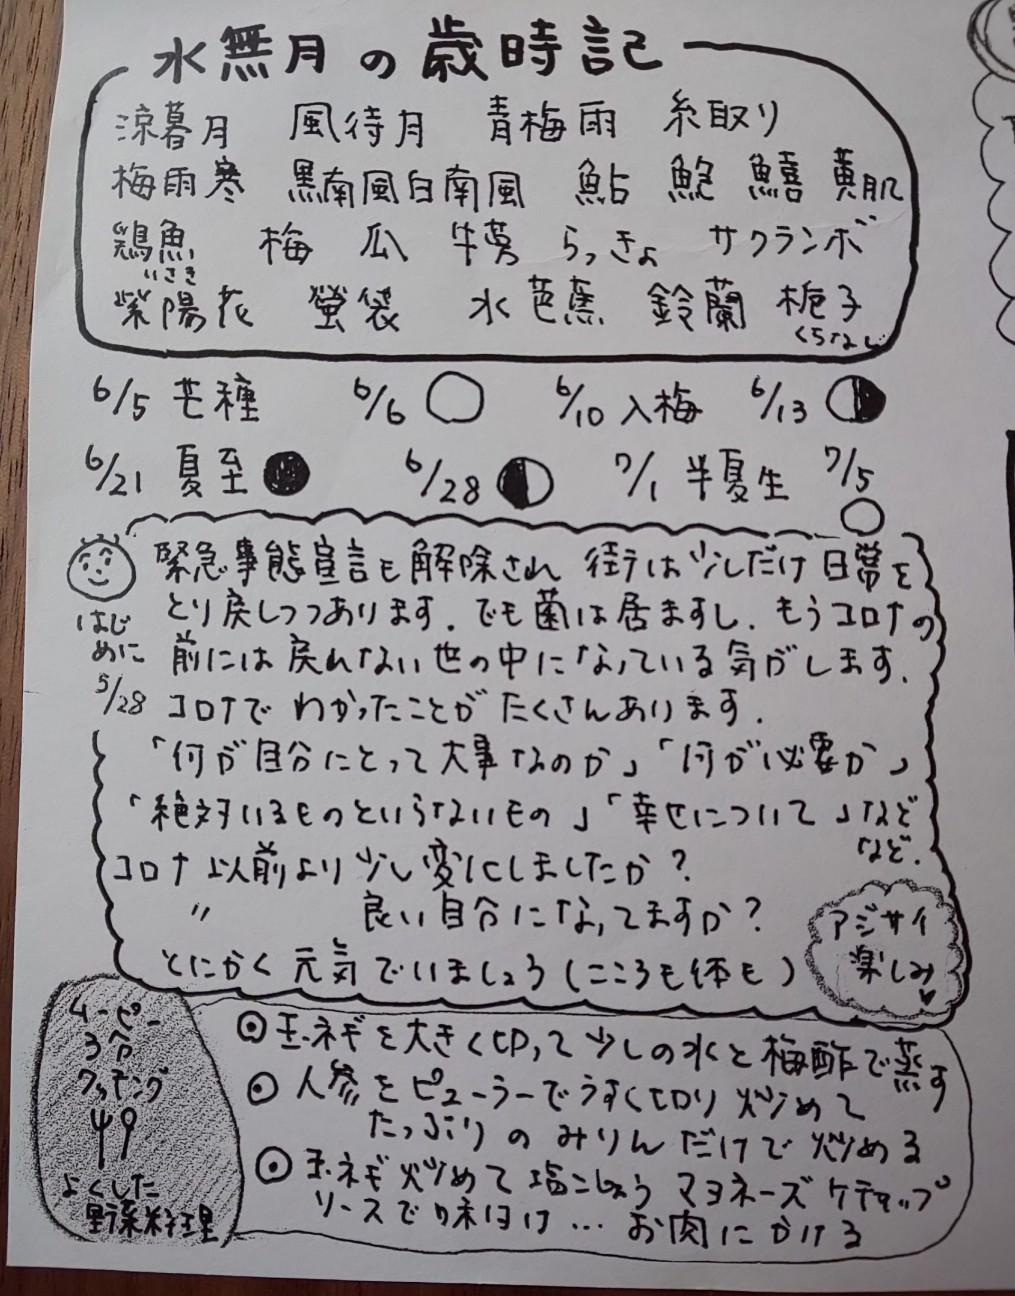 水無月の歳時記
涼暮月 風待月 青梅雨 糸取り
梅雨寒 黒南風白南風 鮎 鮑 鱚 黄肌
鶏魚 梅 瓜 牛蒡 らっきょ サクランボ
いさき
紫陽花 蛍袋 水芭蕉 鈴蘭 梔子
くちなし
6/5 芒種 6/6 6/10 入梅 6/13
6/21 夏至 6/28 7/1 半夏生 7/5
はじめに
5/28
緊急事態宣言も解除され 街は少しだけ日常を
とり戻しつつあります. でも菌は居ますし. もうコロナの
前には戻れない世の中になっている気がします.
コロナでわかったことがたくさんあります.
「何が自分にとって大事なのか」「何が必要か」
「絶対いるものといらないもの」「幸せについて」など
など.
コロナ以前より少し変化しましたか?
〃 良い自分になってますか?
とにかく元気でいましょう(こころも体も)
アジサイ
楽しみ♥
ムーピー
3分
クッキング
49
よくした
野菜料理
◎玉ネギを大きく切って少しの水と梅酢で蒸す
◎人参をピューラーでうすく切り炒めて
たっぷりのみりんだけで炒める
◎玉ネギ炒めて塩こしょうマヨネーズケチャップ
ソースで味付け…お肉にかける